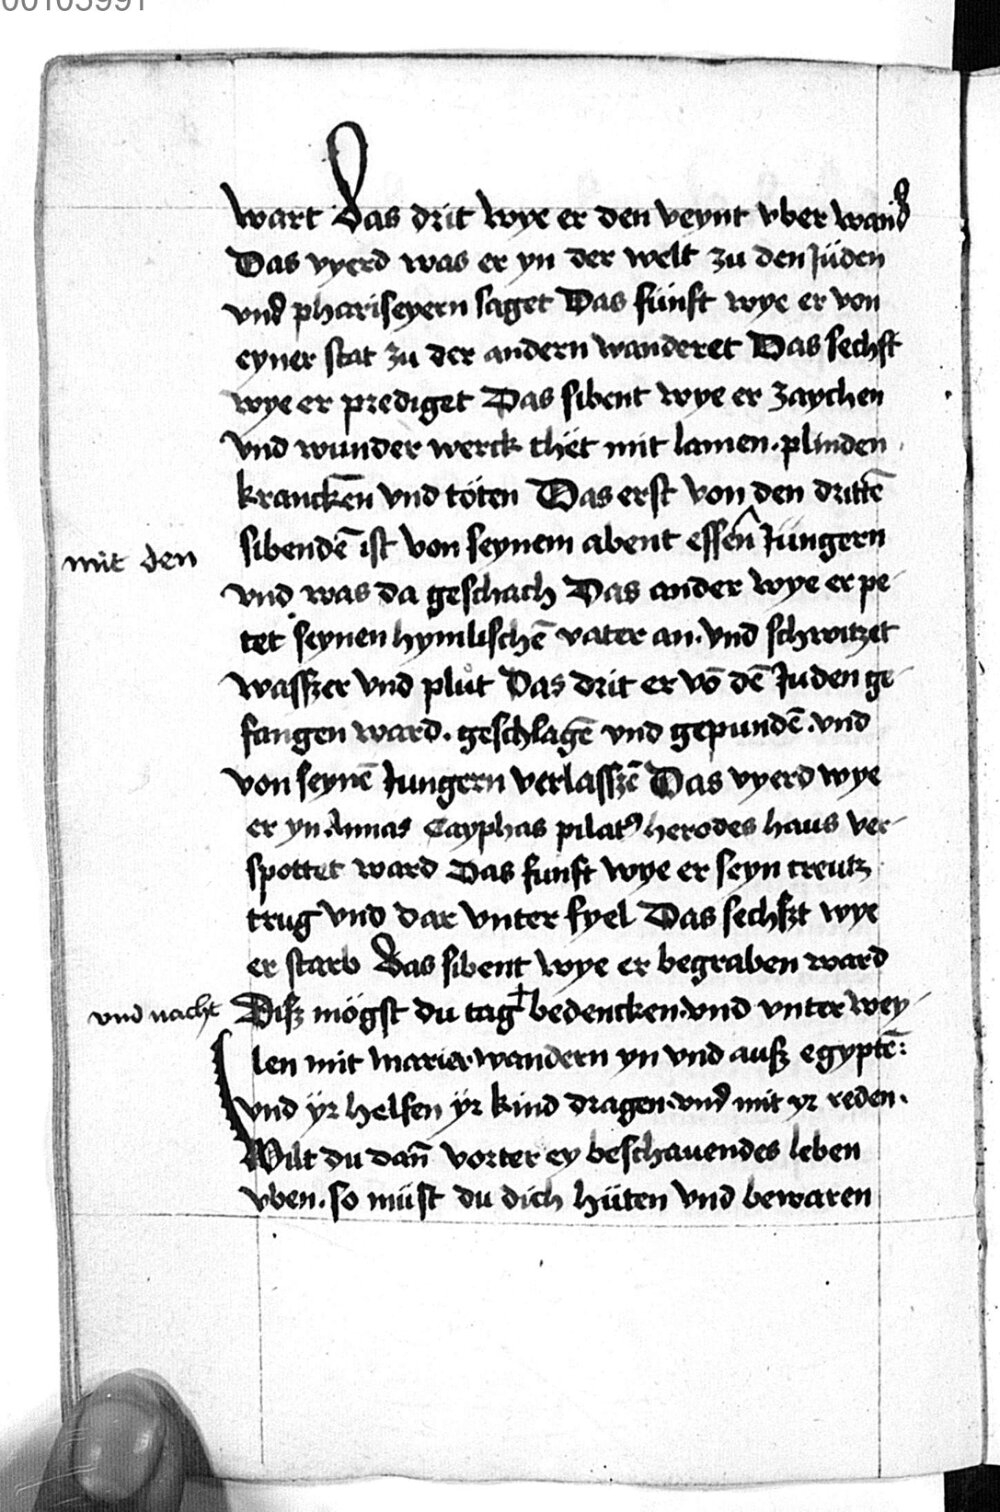 00103991
wart Das drit wye er den veynt vber wand
Das vyerd was er yn der welt zu den Jüden
vnd phariseyern saget Das fünft wye er von
eyner stat zu der andern wanderet Das sechst
wye er prediget Das sibent wye er zaychen
vnd wunder werck thët mit lamen. plinden
kranckēn vnd töten Das erst von den drittē
sibendē ist von seynem abent essen ^ Jüngern
mit den
vnd was da geschach Das ander wye er pe-
tet seynen hymlischē vater an. vnd schwitzet
wasszer vnd plůt Das drit er vō dē Juden ge-
fangen ward. geschlagē vnd gepundē. vnd
von seynē Jungern verlasszē Das vyerd wye
er yn Annas Cayphas pilatꝰ herodes haus ver-
spottet ward Das funft wye er seyn creutz
trug vnd dar vnter fyel Das sechszt wye
er starb Das sibent wye er begraben ward
Disz mögst du tag + bedencken. vnd vnter wey-
und nacht
len mit maria. wandern yn vnd ausz egyptē:
vnd ÿr helfen ÿr kind dragen. vnd mit yr reden.
Wilt du dan̄ vorter ey beschauendes leben
vben. so müst du dich hüten vnd bewaren